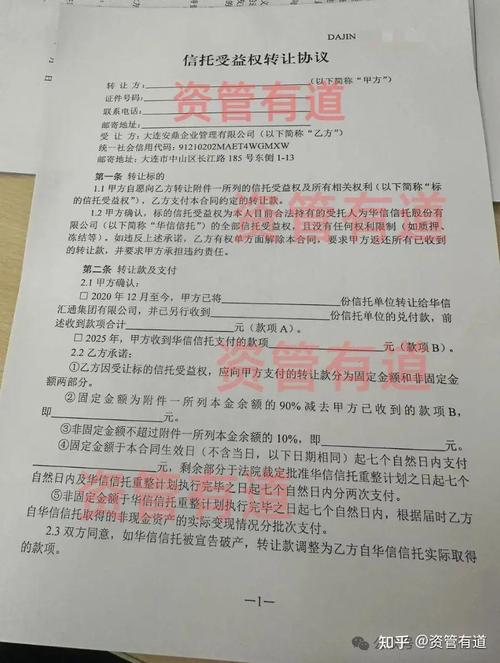 DAJIN
信托受益权转让协议
转 让 方：（以下简称“甲方”）
证件号码：
联系电话：
邮寄地址：
受 让 方：大连安鼎企业管理有限公司（以下简称“乙方”）
统一社会信用代码：91210202MAET4WGMXW
邮寄地址：大连市中山区长江路 185 号东侧 1-13
第一条 转让标的
1.1 甲方自愿向乙方转让附件一所列的信托受益权及所有相关权利（以下简称“标
的信托受益权”），乙方支付本合同约定的转让款。
1.2 甲方确认，标的信托受益权为本人目前合法持有的受托人为华信信托股份有
限公司（以下简称“华信信托”）的全部信托受益权，且没有任何权利限制（如质押、
冻结等）。如违反上述承诺，乙方有权单方面解除本合同，要求甲方返还所有已收到
的转让款，并要求甲方承担违约责任。
第二条 转让款及支付
2.1 甲方确认：
□ 2020 年 12 月至今，甲方已将 份信托单位转让给华信
汇通集团有限公司，并已另行收到 份信托单位的兑付款，前
述收到款项合计 元（款项 A）。
□ 2025 年，甲方收到华信信托支付的款项 元（款项 B）。
2.2 乙方承诺：
①乙方因受让标的信托受益权，应向甲方支付的转让款分为固定金额和非固定金
额两部分。
②固定金额为附件一所列本金余额的 90%减去甲方已收到的款项 B，
即 元。
③非固定金额不超过附件一所列本金余额的 10%，即 元。
④固定金额于本合同生效日（不含当日，以下日期相同）起七个自然日内支付
元，剩余部分于法院裁定批准华信信托重整计划之日起七个
自然日内及华信信托重整计划执行完毕之日起七个自然日内分两次支付。
⑤非固定金额于华信信托重整计划执行完毕之日起七个自然日内，根据届时乙方
自华信信托取得的非现金资产的实际变现情况分批次支付。
2.3 双方同意，如华信信托被宣告破产，转让款调整为乙方自华信信托实际取得
的款项。
—1—
资管有道
资管有道
资管有道
知乎 @资管有道